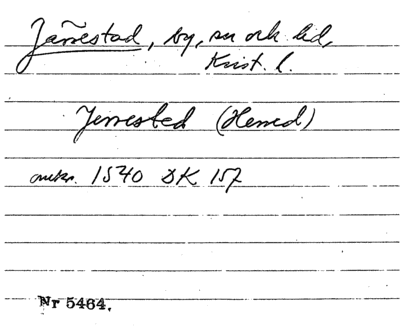 Järrestad, by, sn och hd,
Krist. l.
Jerrested (Herred)
omkr. 1540 DK 157
Nr 5464.